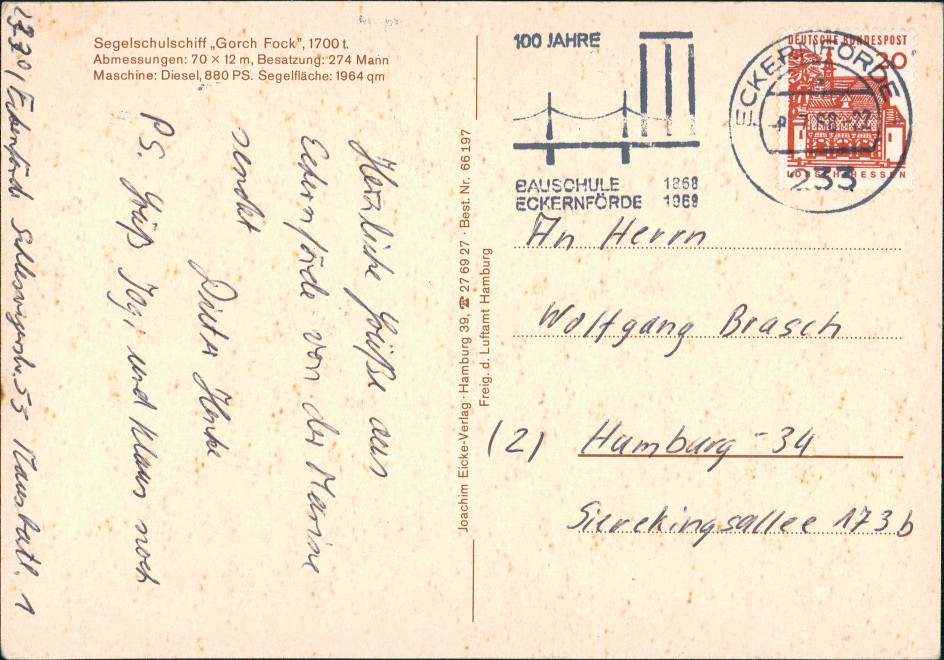 Segelschulschiff „Gorch Fock", 1700 t.
Abmessungen: 70 × 12 m, Besatzung: 274 Mann
Maschine: Diesel, 880 PS. Segelfläche: 1964 qm
Herzliche Grüße aus
Eckernförde von der Marine
sendet
Dieter
PS. Grüß und Klaus noch
Eckernförde 53 1
Joachim Eicke-Verlag · Hamburg 39, ☎ 27 69 27 · Best. Nr. 66 197
Freig. d. Luftamt Hamburg
100 JAHRE
BAUSCHULE 1868
ECKERNFÖRDE 1968
ECKERNFÖRDE
233
DEUTSCHE BUNDESPOST
20
LORSCH HESSEN
An Herrn
Wolfgang Brasch
(2) Hamburg-34
Sievekingsallee 173b